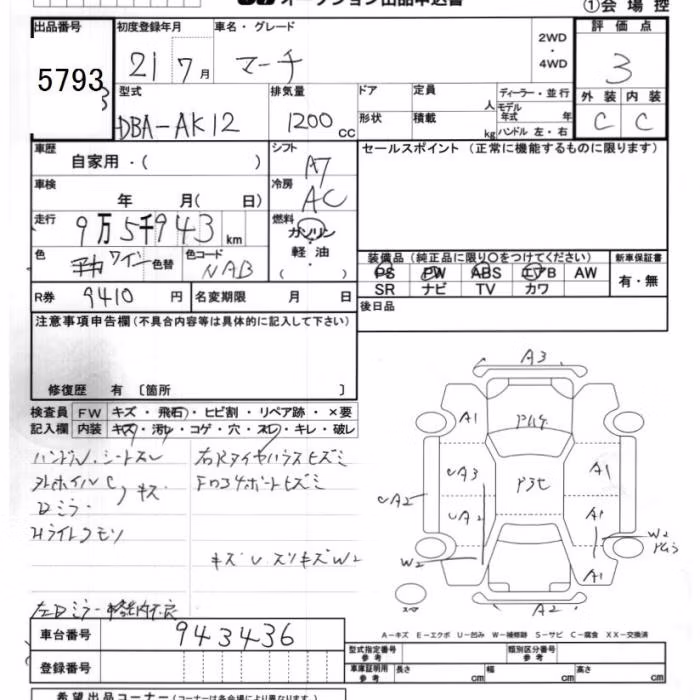 オークション出品申込書 ①会場控
出品番号 初度登録年月 車名・グレード 2WD・4WD 評価点
5793 21 7月 マーチ 3
型式 排気量 ドア 定員 人 ディーラー・並行 外装 内装
DBA-AK12 1200cc 形状 積載 kg モデル年式 年 ハンドル 左・右 C C
車歴 自家用・( ) シフト A7 セールスポイント(正常に機能するものに限ります)
車検 年 月( 日) 冷房 AC
走行 9万5千943km 燃料 ガソリン
色 ワイン 色替 色コード NAB 軽油 ( ・ ) 装備品(純正品に限り〇をつけてください) 新車保証書
PS PW ABS エアB AW 有・無
SR ナビ TV カワ
R券 9410円 名変期限 月 日 後日品
注意事項申告欄(不具合内容等は具体的に記入して下さい)
修復歴 有 〔箇所 〕
検査員 FW キズ・飛石・ヒビ割・リペア跡・×要
記入欄 内装 キズ・汚れ・コゲ・穴・スレ・キレ・破レ
ハンドル・シートスレ
キズ
Dミラー
キズU スリキズW2
左Dミラー格納不良
A3
A1
UA3 A1
UA2 UA2 A1
W2 W2
A1
A2
A-キズ E-エクボ U-凹み W-補修跡 S-サビ C-腐食 XX-交換済
車台番号 943436 型式指定番号 参考 類別区分番号 参考
登録番号 車庫証明用 参考 長さ cm 幅 cm 高さ cm
希望出品コーナー(コーナーは各会場により異なります)